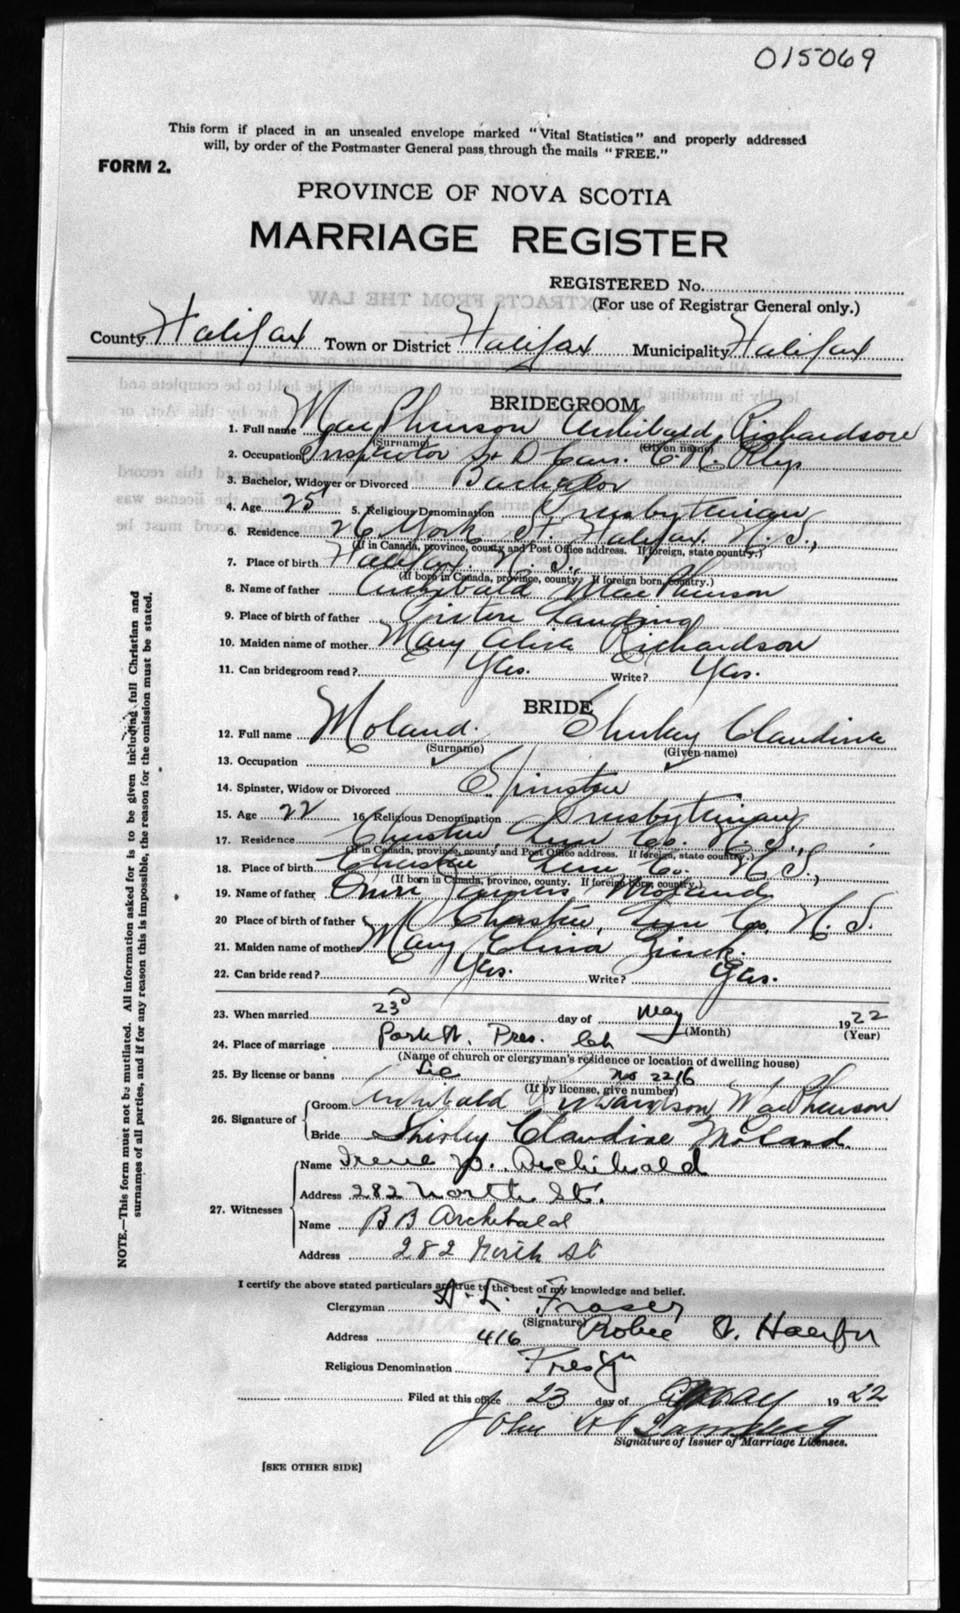 015069
This form if placed in an unsealed envelope marked "Vital Statistics" and properly addressed
will, by order of the Postmaster General pass through the mails "FREE."
FORM 2.
PROVINCE OF NOVA SCOTIA
MARRIAGE REGISTER
REGISTERED No.
(For use of Registrar General only.)
County Halifax Town or District Halifax Municipality Halifax
BRIDEGROOM
1. Full name MacPherson Archibald Richardson
(Surname) (Given name)
2. Occupation Inspector
3. Bachelor, Widower or Divorced Bachelor
4. Age 25 5. Religious Denomination Presbyterian
6. Residence 26 York St. Halifax. N. S.,
(If in Canada, province, county and Post Office address. If foreign, state country.)
7. Place of birth Halifax. N. S.,
(If born in Canada, province, county. If foreign born, country.)
8. Name of father Archibald MacPherson
9. Place of birth of father Landing
10. Maiden name of mother Mary Richardson
11. Can bridegroom read? Yes. Write? Yes.
BRIDE
12. Full name Moland. Shirley Claudine
(Surname) (Given name)
13. Occupation
14. Spinster, Widow or Divorced Spinster
15. Age 22 16 Religious Denomination Presbyterian
17. Residence Chester, Lun Co. N. S.,
(If in Canada, province, county and Post Office address. If foreign, state country.)
18. Place of birth Chester Lun Co. N. S.,
(If born in Canada, province, county. If foreign born, country.)
19. Name of father James Moland
20 Place of birth of father Chester, Lun Co. N. S.
21. Maiden name of mother Mary Zinck.
22. Can bride read? Yes. Write? Yes.
23. When married 23d day of May 1922
(Month) (Year)
24. Place of marriage Park St. Pres. Ch
(Name of church or clergyman's residence or location of dwelling house)
25. By license or banns Lic No 2216
(If by license, give number)
26. Signature of Groom Archibald Richardson MacPherson
Bride Shirley Claudine Moland.
27. Witnesses Name Irene Archibald
Address 282 North St.
Name B B Archibald
Address 282 North St
I certify the above stated particulars are true to the best of my knowledge and belief.
Clergyman Fraser
(Signature)
Address 416 Robie St. Halifax
Religious Denomination
Filed at this office 23 day of May 1922
John
Signature of Issuer of Marriage Licenses.
[SEE OTHER SIDE]
NOTE.—This form must not be mutilated. All information asked for is to be given including full Christian and
surnames of all parties, and if for any reason this is impossible, the reason for the omission must be stated.